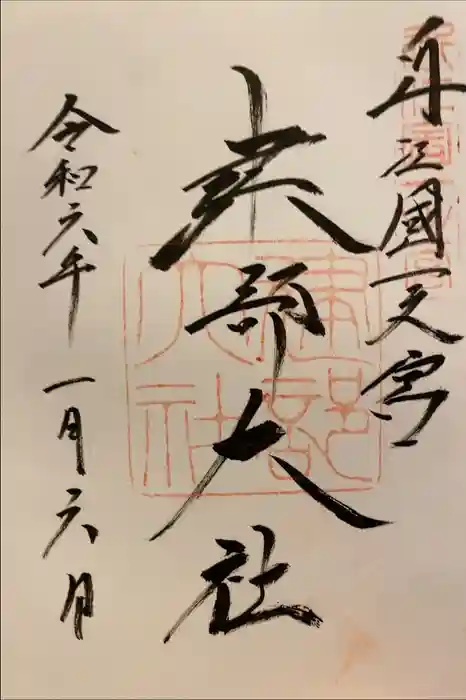 近江國一之宮
建部大社
令和六年一月六日